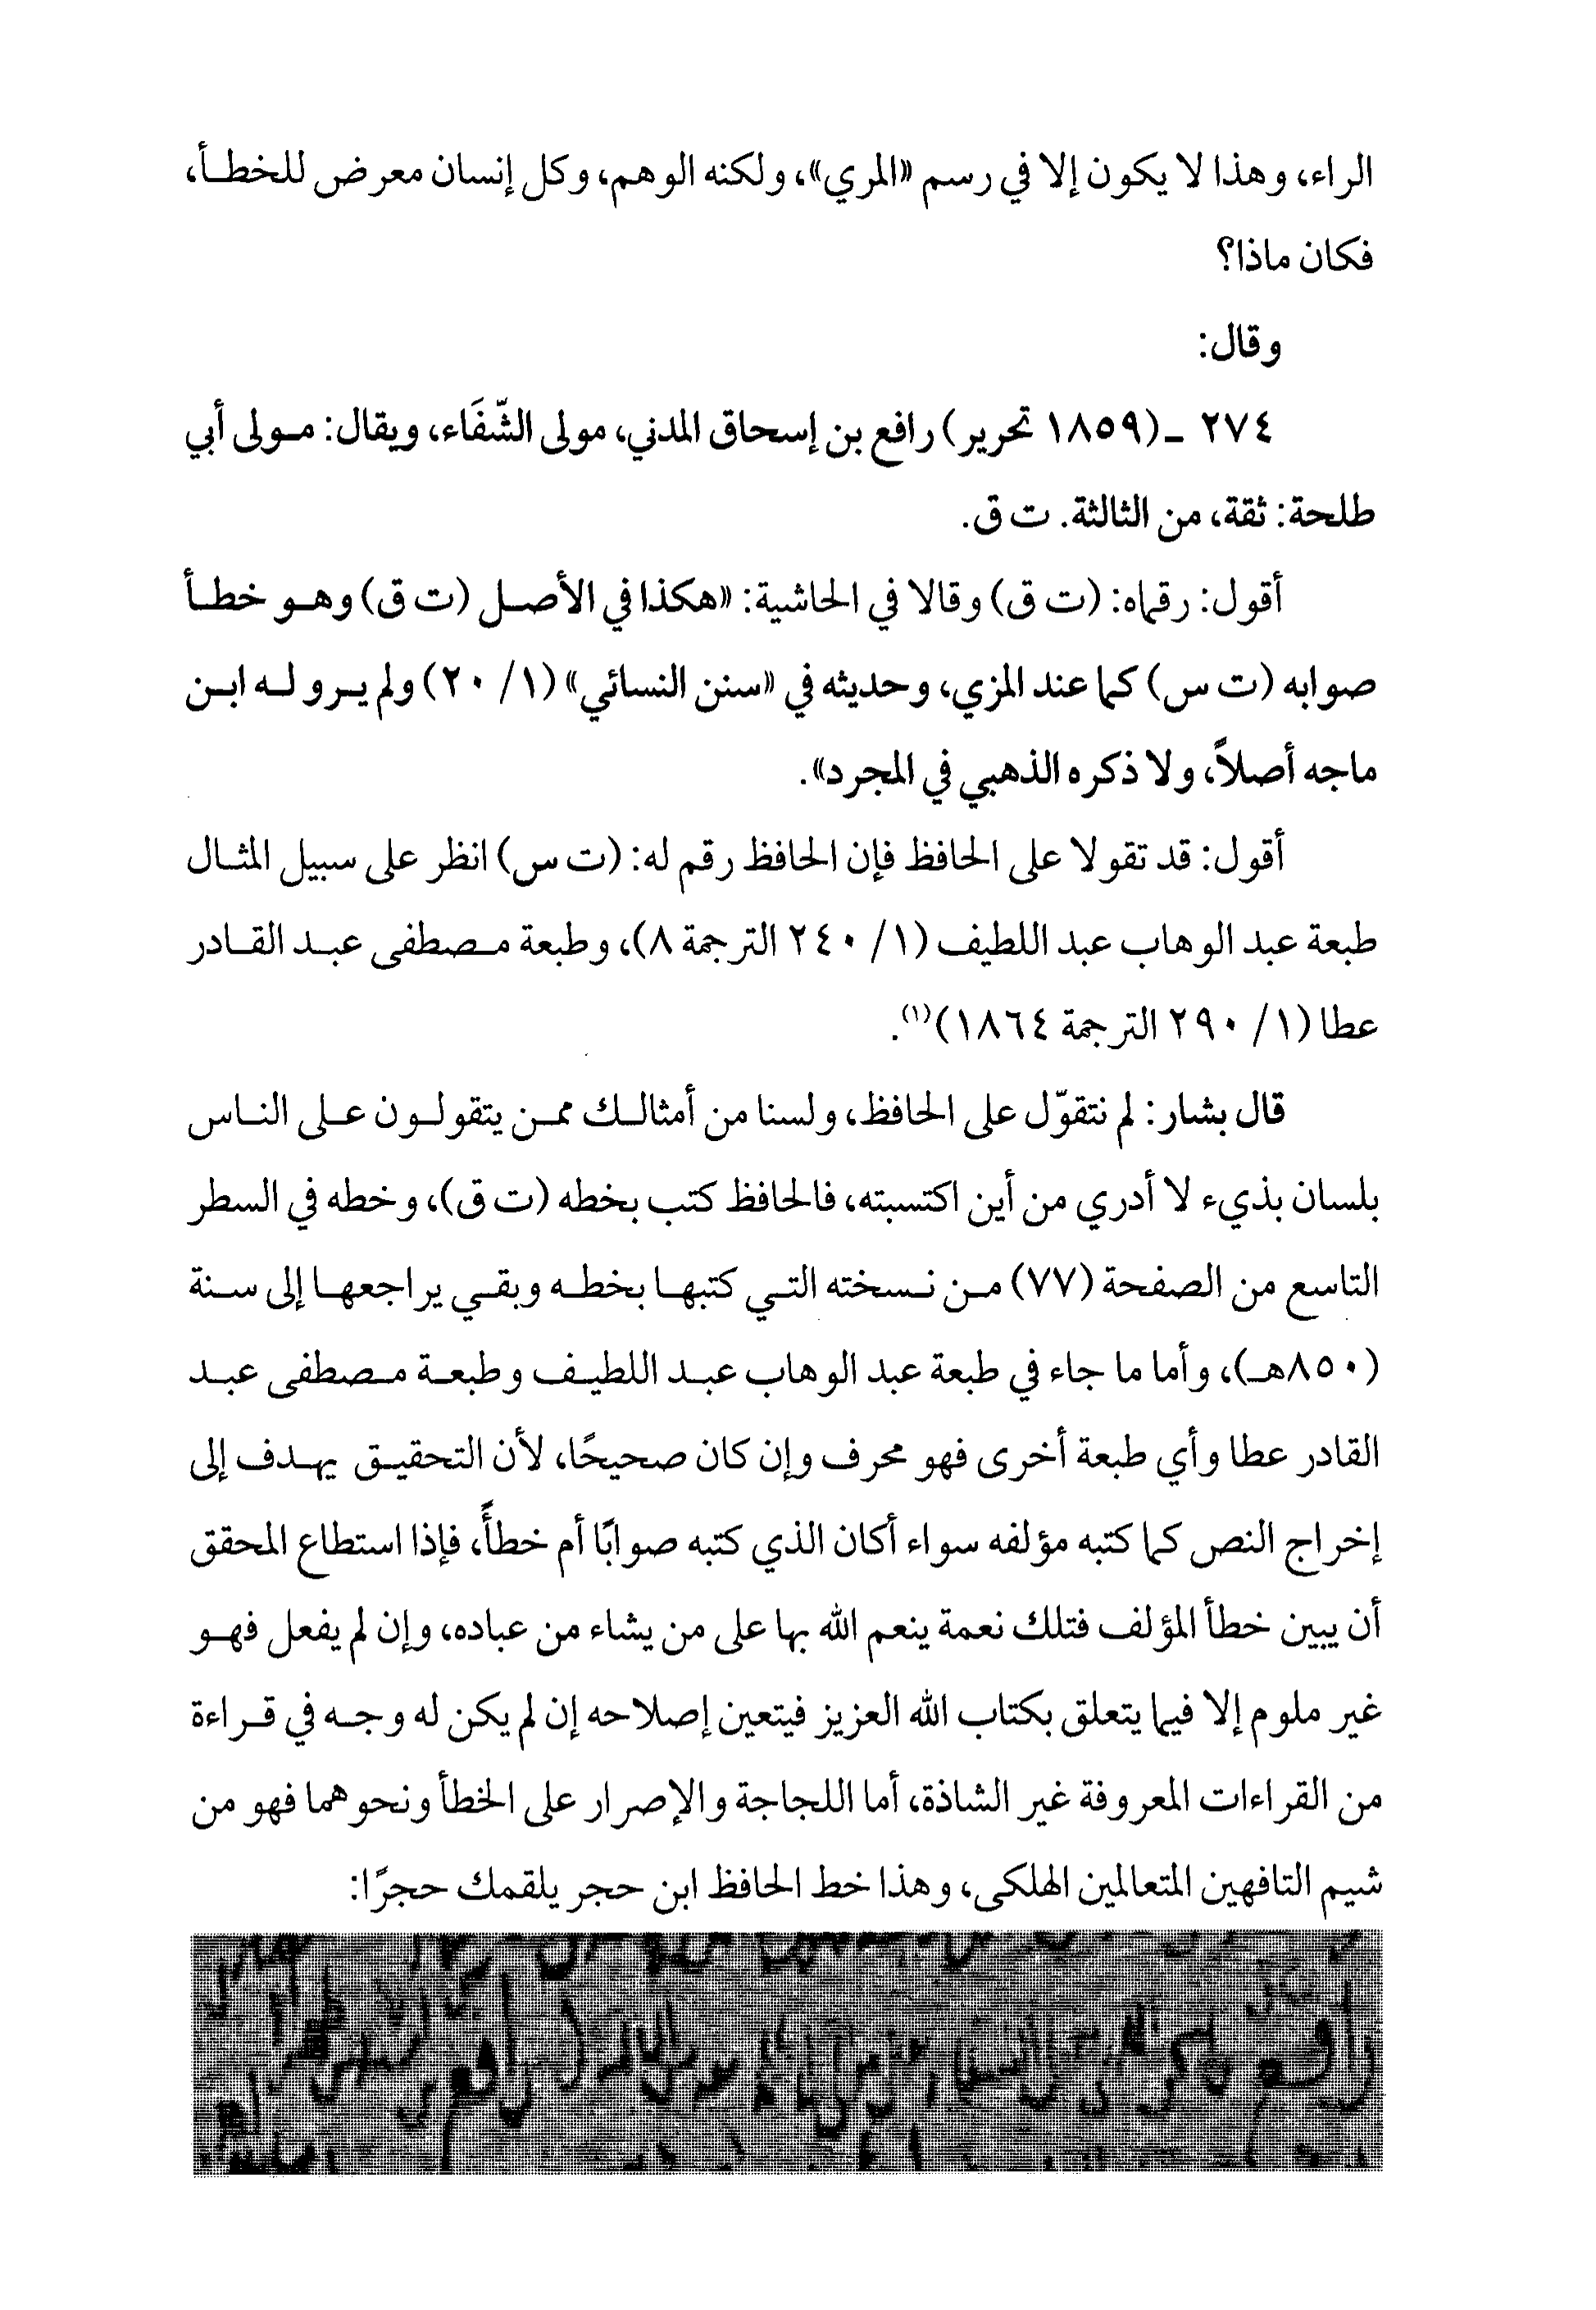 الراء، وهذا لا يكون إلا في رسم «المري»، ولكنه الوهم، وكل إنسان معرض للخطأ،
فكان ماذا؟
وقال:
٢٧٤ - (١٨٥٩ تحرير) رافع بن إسحاق المدني، مولى الشّفَاء، ويقال: مولى أبي
طلحة: ثقة، من الثالثة. ت ق.
أقول: رقماه: (ت ق) وقالا في الحاشية: «هكذا في الأصل (ت ق) وهو خطأ
صوابه (ت س) كما عند المزي، وحديثه في «سنن النسائي» (١/ ٢٠) ولم يرو له ابن
ماجه أصلاً، ولا ذكره الذهبي في المجرد».
أقول: قد تقولا على الحافظ فإن الحافظ رقم له: (ت س) انظر على سبيل المثال
طبعة عبد الوهاب عبد اللطيف (١/ ٢٤٠ الترجمة ٨)، وطبعة مصطفى عبد القادر
عطا (١/ ٢٩٠ الترجمة ١٨٦٤)(١).
قال بشار: لم نتقوّل على الحافظ، ولسنا من أمثالك ممن يتقولون على الناس
بلسان بذيء لا أدري من أين اكتسبته، فالحافظ كتب بخطه (ت ق)، وخطه في السطر
التاسع من الصفحة (٧٧) من نسخته التي كتبها بخطه وبقي يراجعها إلى سنة
(٨٥٠هـ)، وأما ما جاء في طبعة عبد الوهاب عبد اللطيف وطبعة مصطفى عبد
القادر عطا وأي طبعة أخرى فهو محرف وإن كان صحيحًا، لأن التحقيق يهدف إلى
إخراج النص كما كتبه مؤلفه سواء أكان الذي كتبه صوابًا أم خطأً، فإذا استطاع المحقق
أن يبين خطأ المؤلف فتلك نعمة ينعم الله بها على من يشاء من عباده، وإن لم يفعل فهو
غير ملوم إلا فيما يتعلق بكتاب الله العزيز فيتعين إصلاحه إن لم يكن له وجه في قراءة
من القراءات المعروفة غير الشاذة، أما اللجاجة والإصرار على الخطأ ونحوهما فهو من
شيم التافهين المتعالمين الهلكى، وهذا خط الحافظ ابن حجر يلقمك حجرًا: